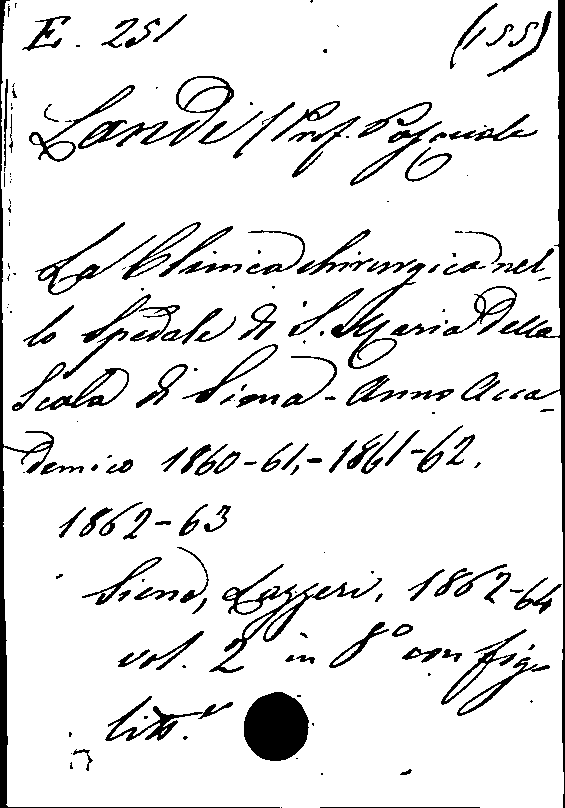 E. 251 (155)
Landi (Prof. Pasquale
La Clinica chirurgica nel-
lo Spedale di S. Maria della
Scala di Siena - Anno Acca-
demico 1860-61, - 1861-62.
1862-63
Siena, Lazzeri, 1862-64
vol. 2 in 8° con fig.
litt.e